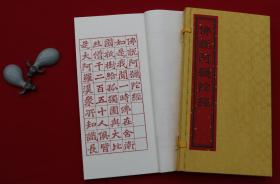 佛說阿彌陀經
佛說阿彌陀經
如是我聞一時佛在舍衛
國祇樹給孤獨園與大比
丘僧千二百五十人俱皆
是大阿羅漢衆所知識長